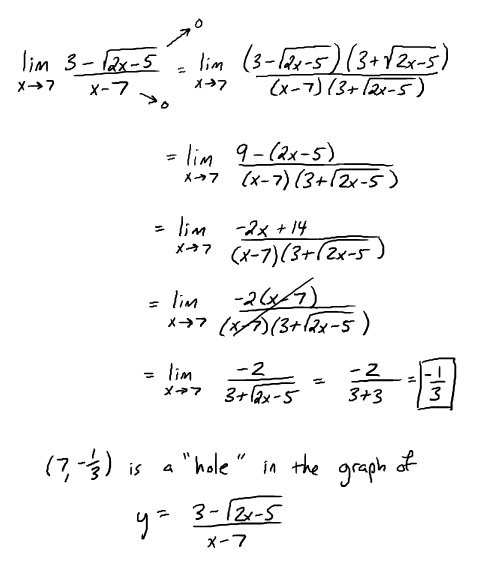 lim x→7 (3-√(2x-5))/(x-7) →0 →0 = lim x→7 ((3-√(2x-5))(3+√(2x-5)))/((x-7)(3+√(2x-5)))
= lim x→7 (9-(2x-5))/((x-7)(3+√(2x-5)))
= lim x→7 (-2x+14)/((x-7)(3+√(2x-5)))
= lim x→7 (-2(x-7))/((x-7)(3+√(2x-5)))
= lim x→7 (-2)/(3+√(2x-5)) = (-2)/(3+3) = -1/3
(7, -1/3) is a "hole" in the graph of
y = (3-√(2x-5))/(x-7)